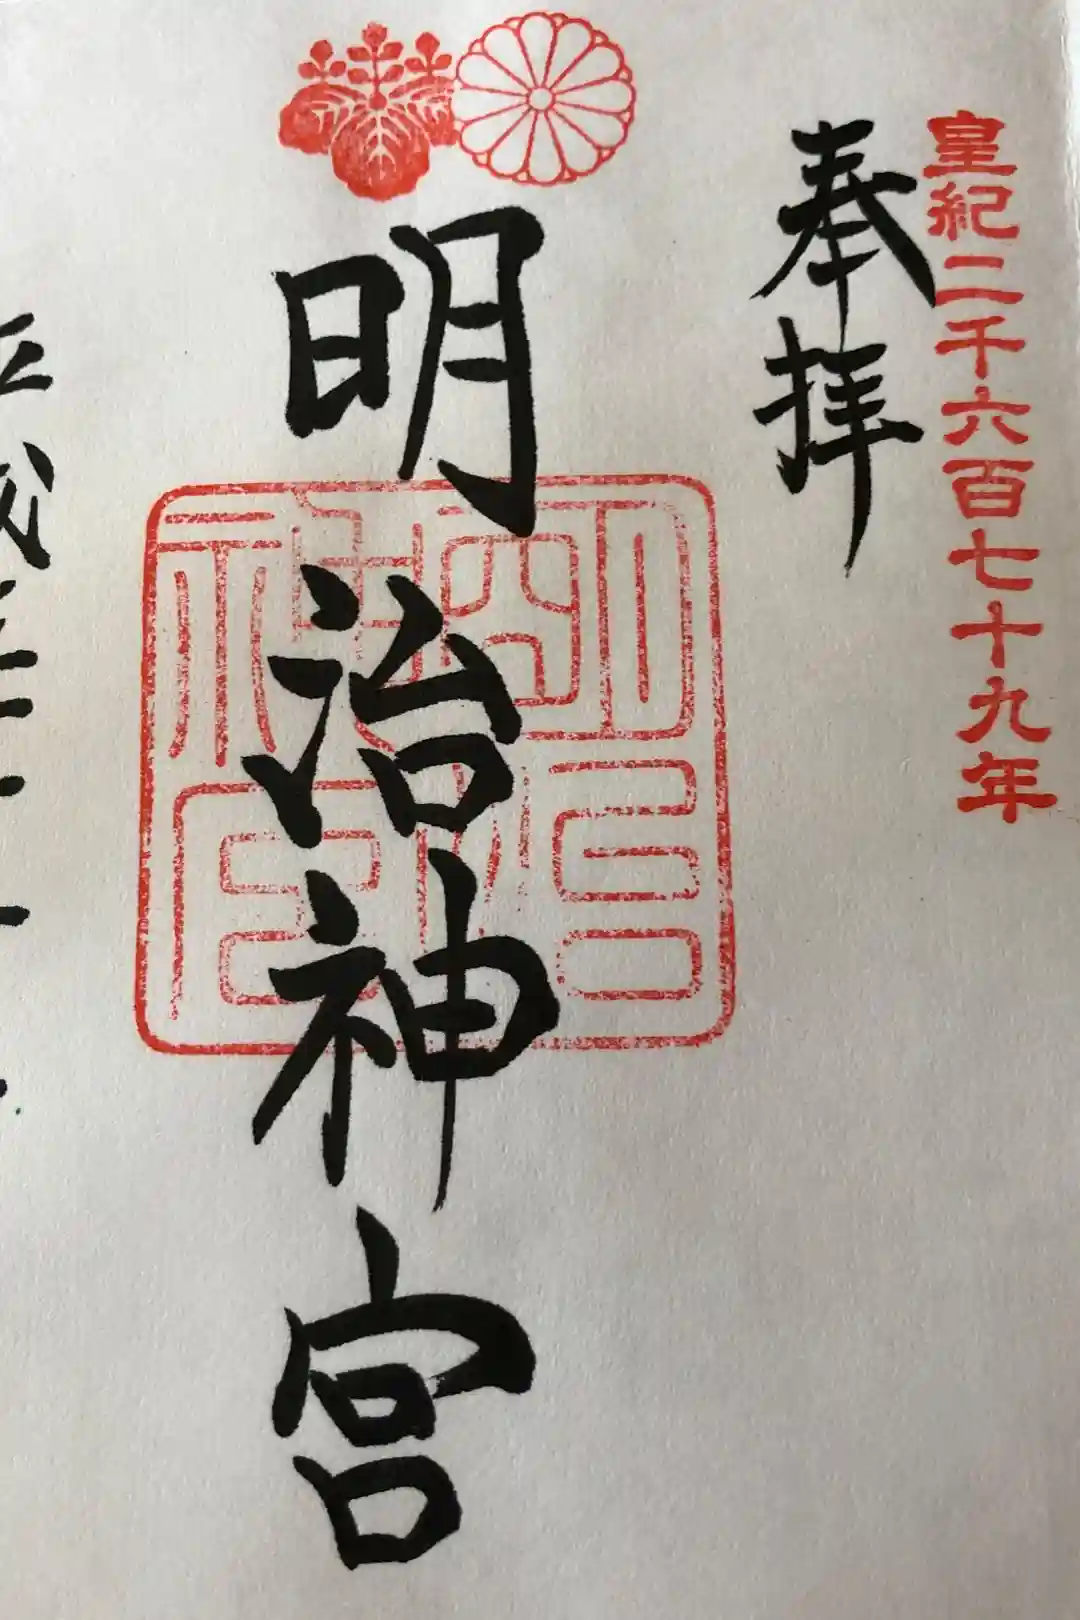 皇紀二千六百七十九年
奉拝
明治神宮
明治神宮
平成三十一